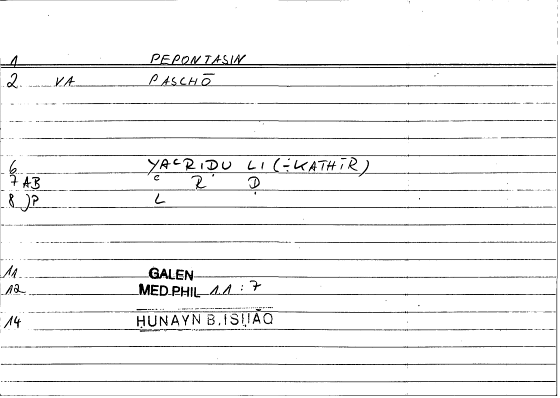 1 PEPONTASIN
2 VA PASCHŌ
6 YAᶜRIḌU LI (-KATHĪR)
7 AB ᶜ R Ḍ
8 JP L
11 GALEN
12 MED.PHIL 11:7
14 ḤUNAYN B. ISḤĀQ